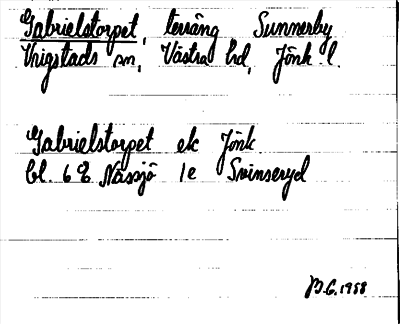 Gabrielstorpet, terräng Sunnerby
Vrigstads sn, Västra hd, Jönk. l.
Gabrielstorpet ek Jönk
bl. 6E Nässjö 1e Svinseryd
B.G. 1958